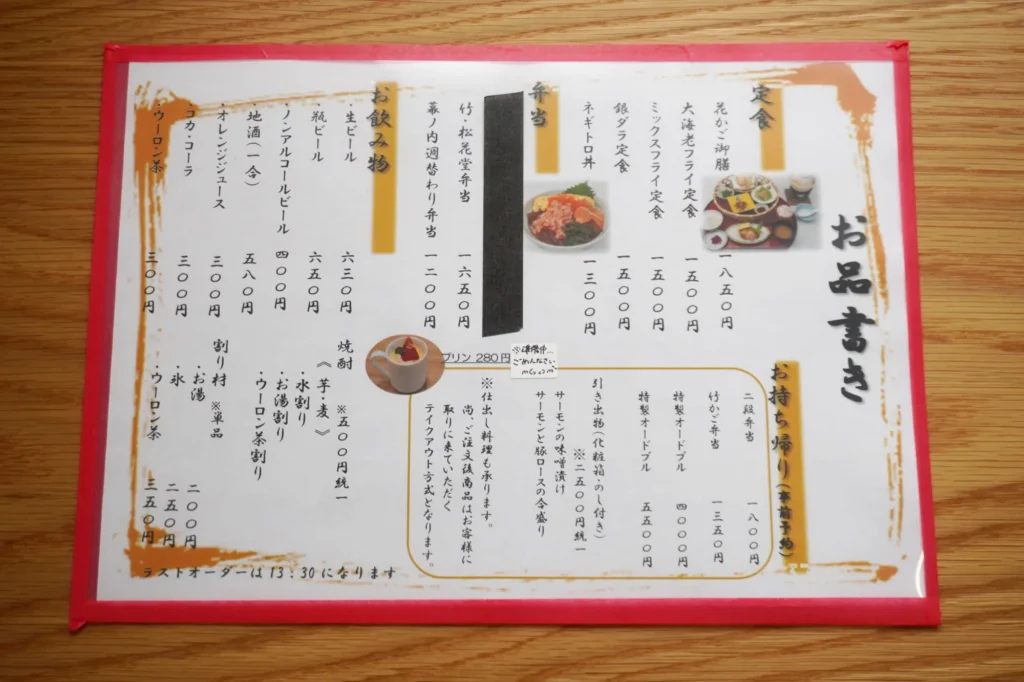 お品書き
定食
花かご御膳 一八五〇円
大海老フライ定食 一五〇〇円
ミックスフライ定食 一五〇〇円
銀ダラ定食 一五〇〇円
ネギトロ丼 一三〇〇円
弁当
竹・松花堂弁当 一六五〇円
幕ノ内週替わり弁当 一二〇〇円
お飲み物
・生ビール 六三〇円
・瓶ビール 六五〇円
・ノンアルコールビール 四〇〇円
・地酒(一合) 五八〇円
・オレンジジュース 三〇〇円
・コカ・コーラ 三〇〇円
・ウーロン茶 三〇〇円
お持ち帰り(事前予約)
二段弁当 一八〇〇円
竹かご弁当 一三五〇円
特製オードブル 四〇〇〇円
特製オードブル 五五〇〇円
引き出物(化粧箱・のし付き)
※二五〇〇円統一
サーモンの味噌漬け
サーモンと豚ロースの合盛り
※仕出し料理も承ります。
尚、ご注文後商品はお客様に
取りに来ていただく
テイクアウト方式となります。
プリン 280円
※準備中…
ごめんなさい
m(_ _)m
焼酎 ※五〇〇円統一
《芋・麦》
・水割り
・お湯割り
・ウーロン茶割り
割り材 ※単品
・お湯 二〇〇円
・氷 二五〇円
・ウーロン茶 三五〇円
ラストオーダーは13:30になります